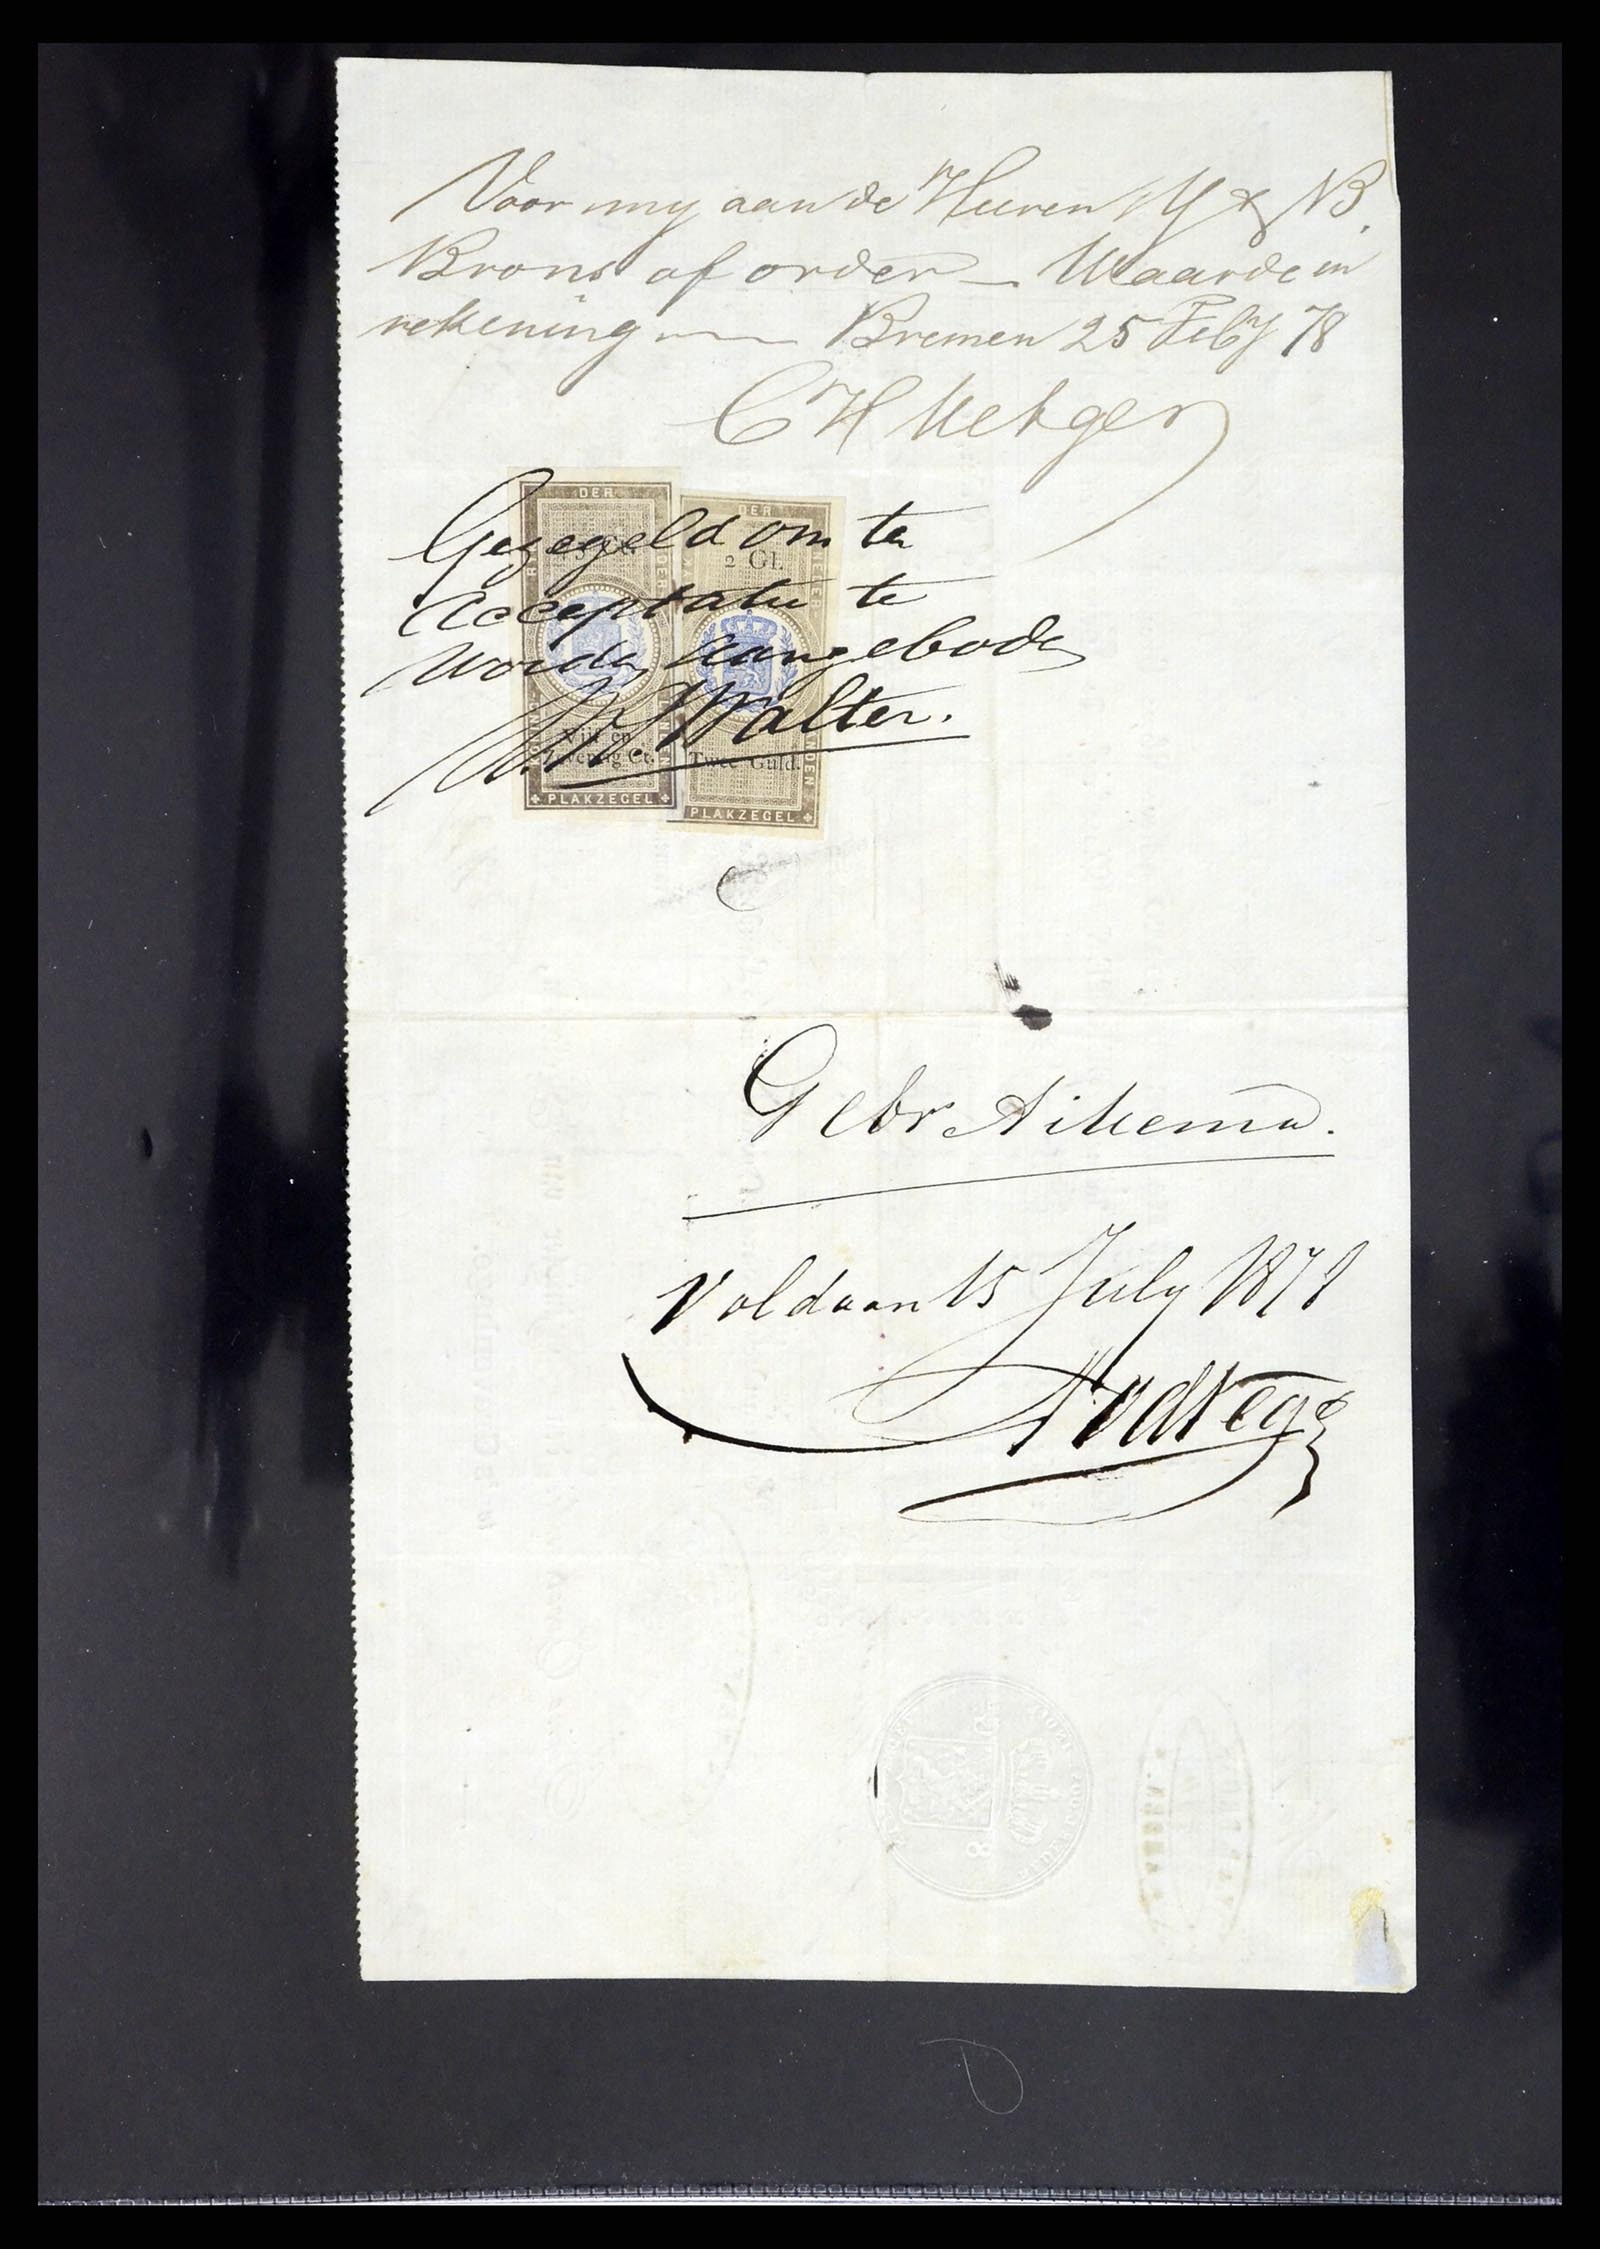 Voor my aan de Heeren Y & B.
Brons of order – Waarde in
rekening — Bremen 25 Feb'y 78
CH Metger
DER
DER
Gezegeld om ter
2 Gl.
Acceptatie te
worden aangeboden
Walter.
Vijf en
Zeventig Ct.
Twee Guld.
PLAKZEGEL
PLAKZEGEL
Gebr Aikema.
Voldaan 15 July 1878
8